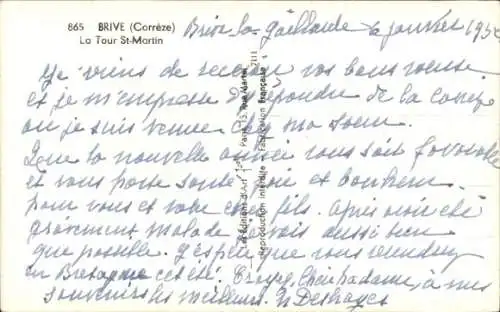 865 BRIVE (Corrèze)
La Tour St-Martin
Brive la Gaillarde 6 janvier 195
Je viens de recevoir vos bons voeux
et je m'empresse d'y répondre de la Corrèze
où je suis venue chez ma soeur.
Que la nouvelle année vous soit favorable
et vous porte santé joie et bonheur
pour vous et votre cher fils. Après avoir été
gravement malade je vais aussi bien
que possible. J'espère que vous viendrez
en Bretagne cet été. Croyez, Chère Madame, à mes
souvenirs les meilleurs. Deshayes
Les Editions d'Art
Reproduction interdite
Fabrication Française